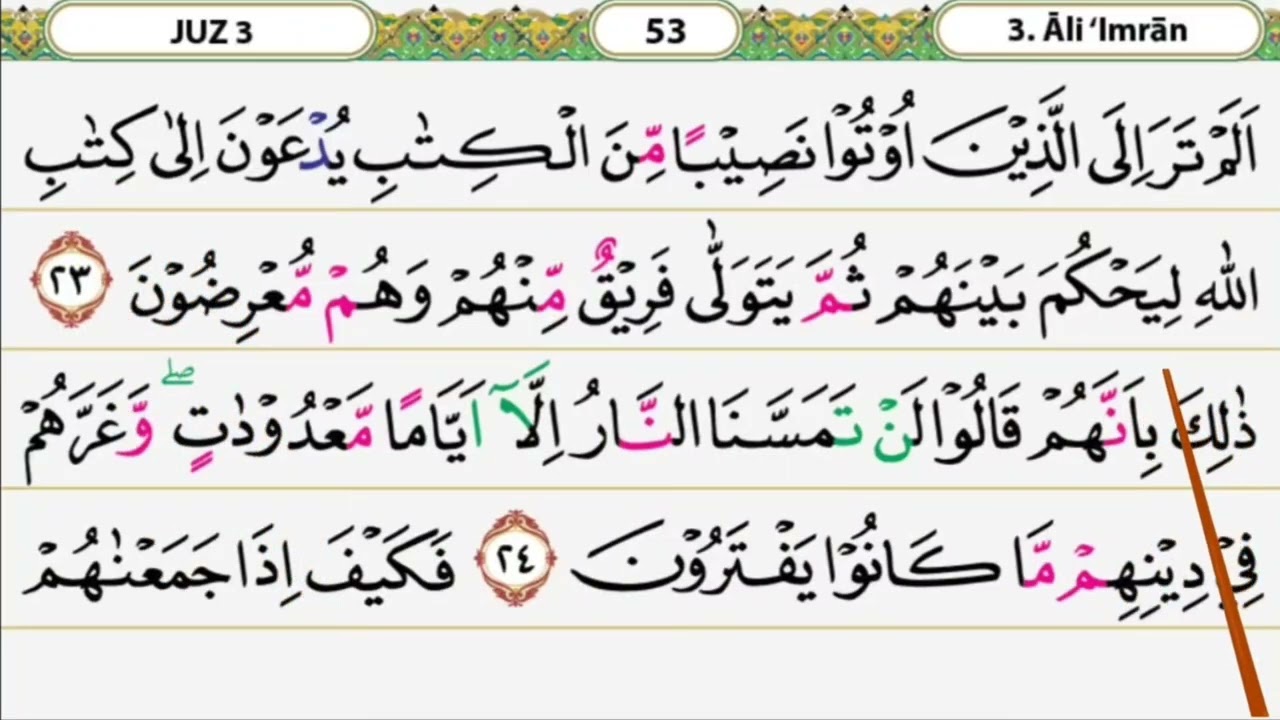 JUZ 3
53
3. Āli ‘Imrān
اَلَمْ تَرَ اِلَى الَّذِيْنَ اُوْتُوْا نَصِيْبًا مِّنَ الْكِتٰبِ يُدْعَوْنَ اِلٰى كِتٰبِ
اللّٰهِ لِيَحْكُمَ بَيْنَهُمْ ثُمَّ يَتَوَلّٰى فَرِيْقٌ مِّنْهُمْ وَهُمْ مُّعْرِضُوْنَ ٢٣
ذٰلِكَ بِاَنَّهُمْ قَالُوْا لَنْ تَمَسَّنَا النَّارُ اِلَّآ اَيَّامًا مَّعْدُوْدٰتٍ ۖ وَّغَرَّهُمْ
فِيْ دِيْنِهِمْ مَّا كَانُوْا يَفْتَرُوْنَ ٢٤ فَكَيْفَ اِذَا جَمَعْنٰهُمْ